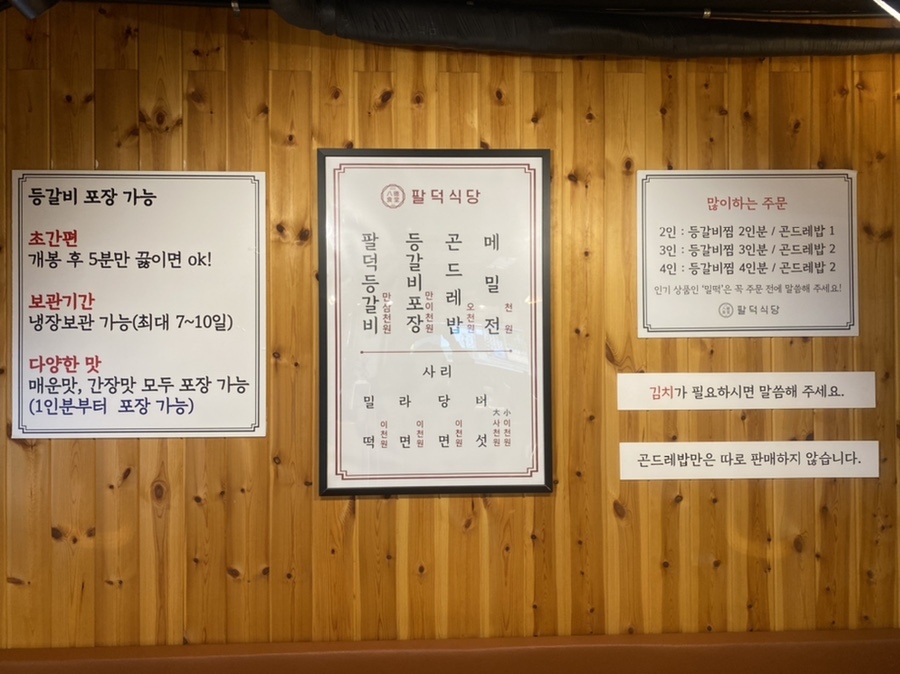 등갈비 포장 가능
초간편
개봉 후 5분만 끓이면 ok!
보관기간
냉장보관 가능(최대 7~10일)
다양한 맛
매운맛, 간장맛 모두 포장 가능
(1인분부터 포장 가능)
팔덕식당
팔덕등갈비 만삼천원
등갈비포장 만이천원
곤드레밥 오천원
메밀전 천원
사리
밀떡 이천원
라면 이천원
당면 이천원
버섯 小이천원 大사천원
많이하는 주문
2인 : 등갈비찜 2인분 / 곤드레밥 1
3인 : 등갈비찜 3인분 / 곤드레밥 2
4인 : 등갈비찜 4인분 / 곤드레밥 2
인기 상품인 '밀떡'은 꼭 주문 전에 말씀해 주세요!
팔덕식당
김치가 필요하시면 말씀해 주세요.
곤드레밥만은 따로 판매하지 않습니다.